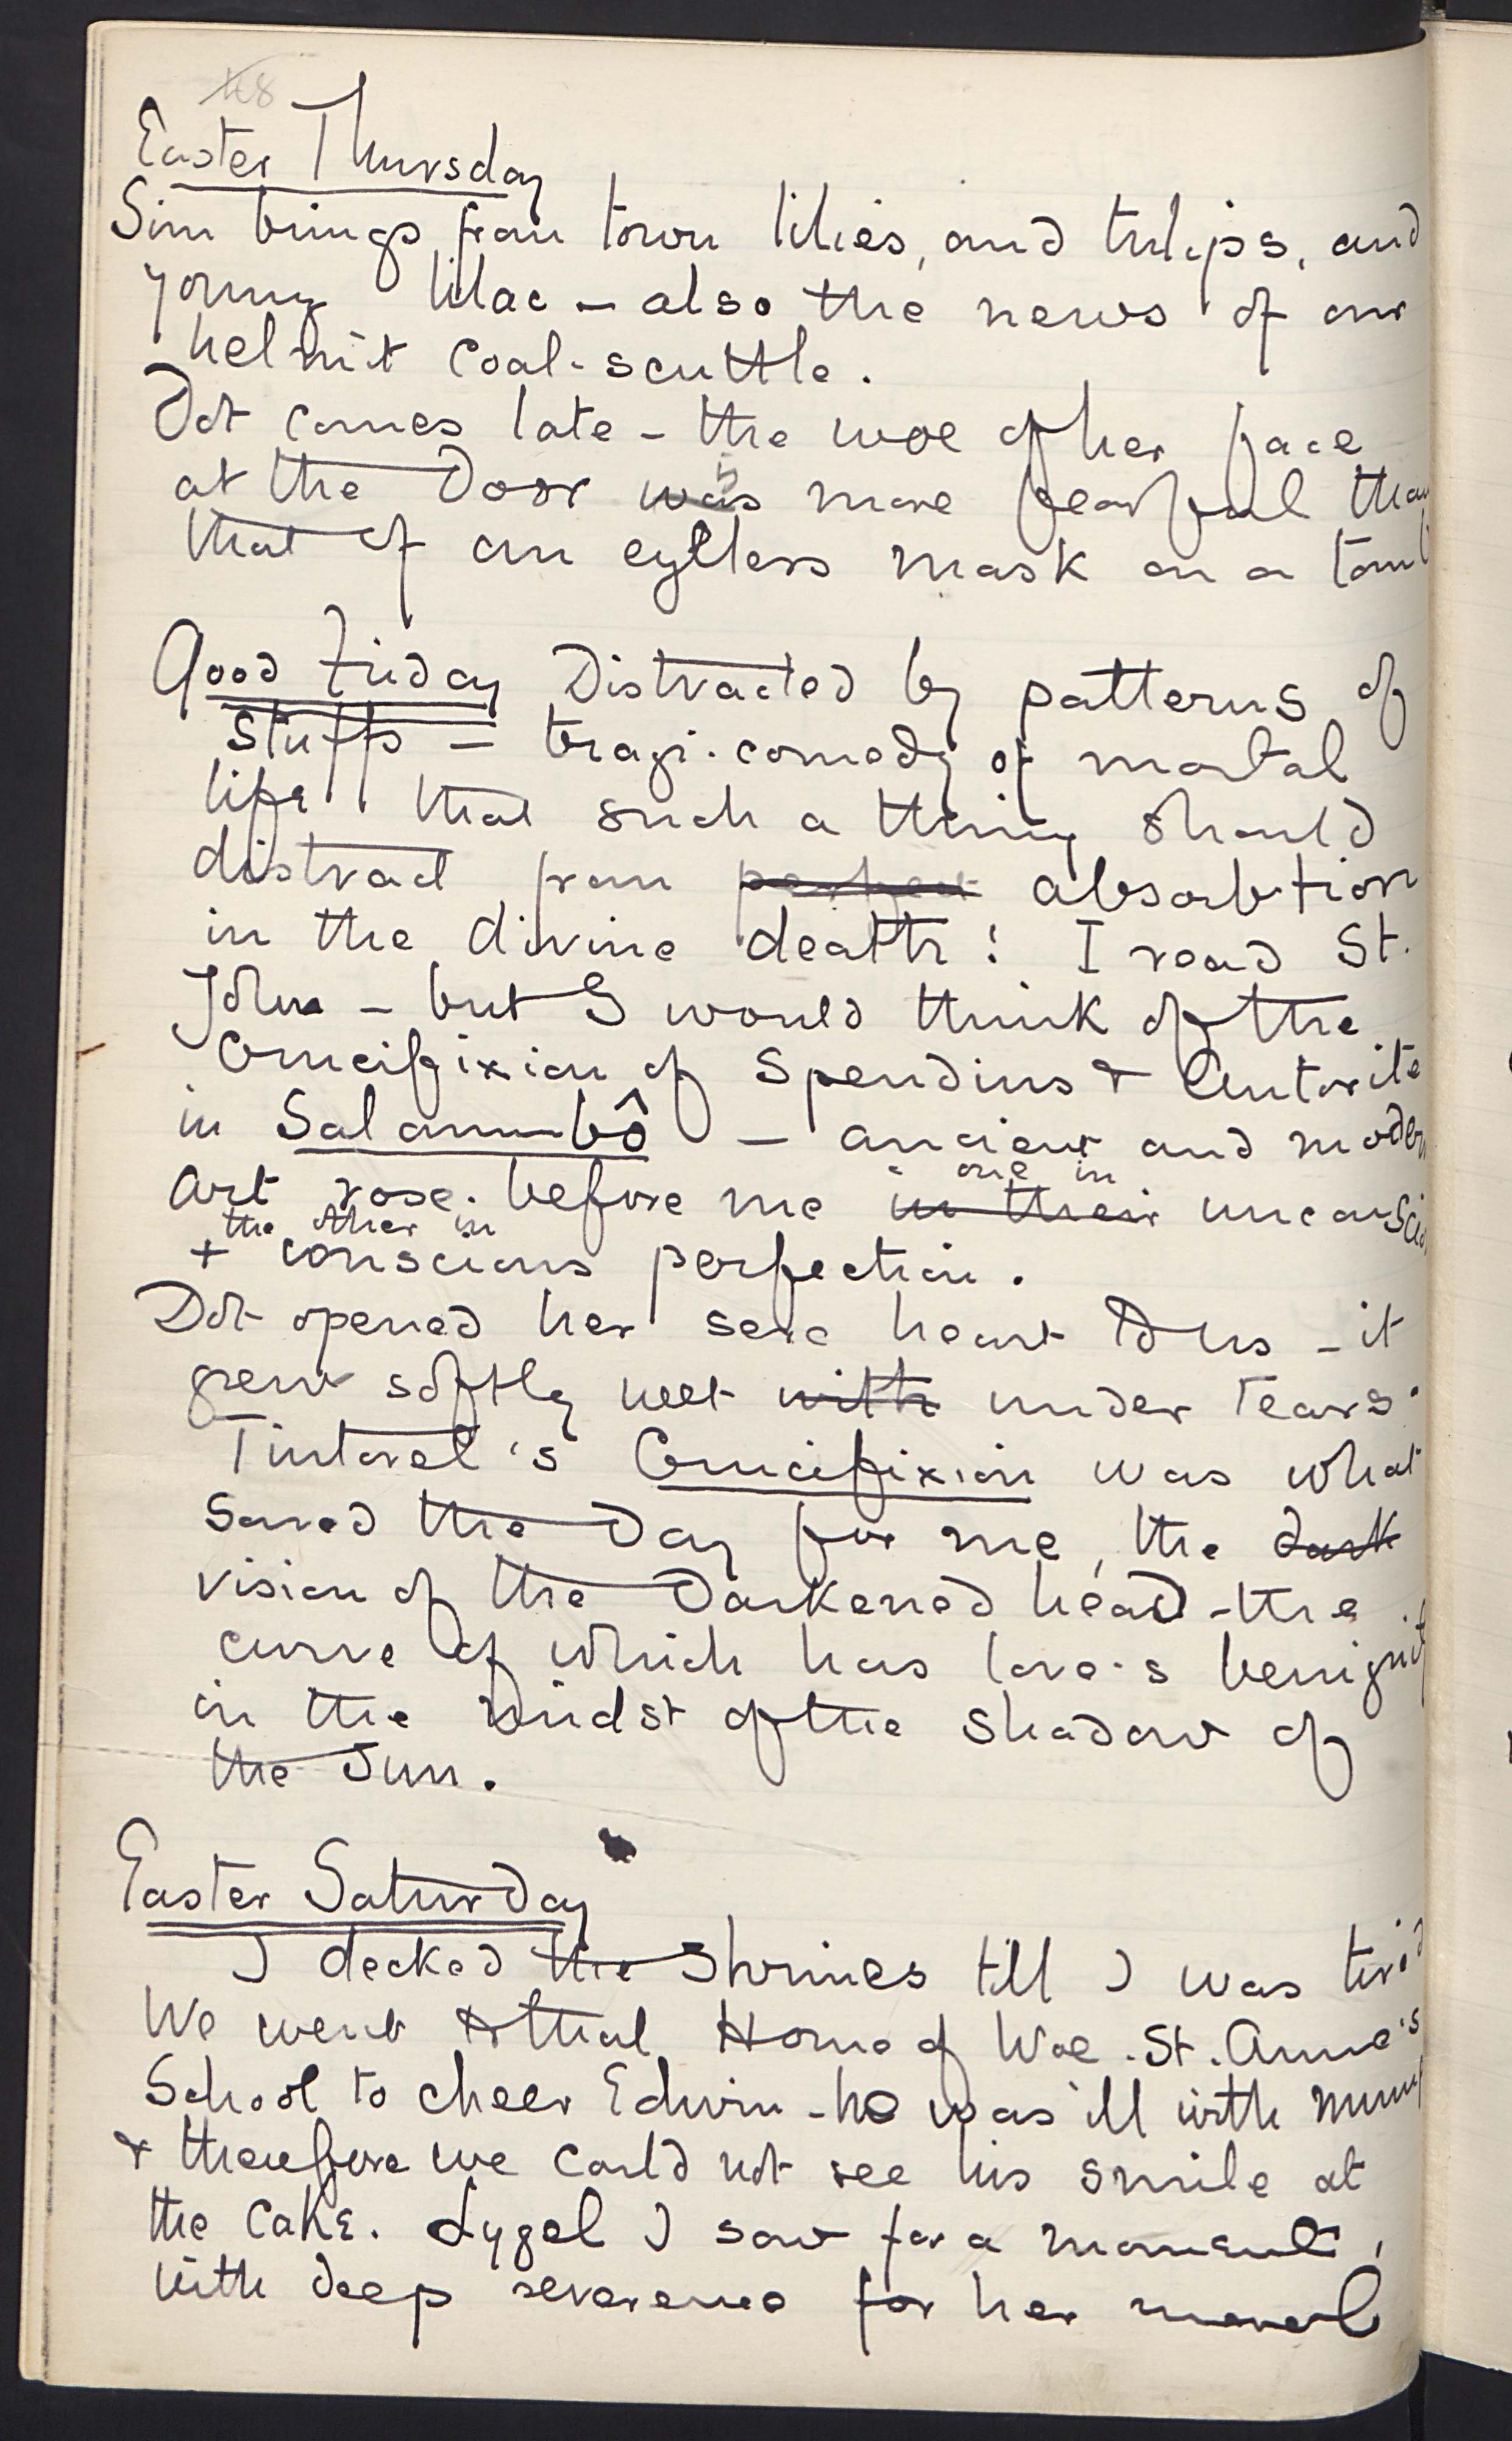 Easter Thursday
Sim brings from town lilies, and tulips, and
young lilac – also the news of our
helmit coal-scuttle.
Dot comes late – the woe of her face
at the Door was more fearful than
that of an eyeless mask on a tomb
Good Friday Distracted by patterns of
stuffs – tragi-comedy of mortal
life that such a thing should
distract from perfect absorbtion
in the divine death! I read St.
John – but I would think of the
Crucifixion of Spendius & Autorite
in Salammbô – ancient and modern
one in
art rose before me in their unconscious
the other in
+ conscious perfection.
Dot opened her sere heart to us – it
grew softly wet with under tears.
Tintoret's Crucifixion was what
saved the Day for me, the dark
vision of the Darkened head – the
curve of which has love's benignity
in the midst of the shadow of
the Sun.
Easter Saturday
I decked the Shrines till I was tired
We went to that Home of Woe. St. Anne's
School to cheer Edwin – he was ill with mumps
& therefore we could not see his smile at
the cake. Lygel I saw for a moment,
with deep reverence for her moral